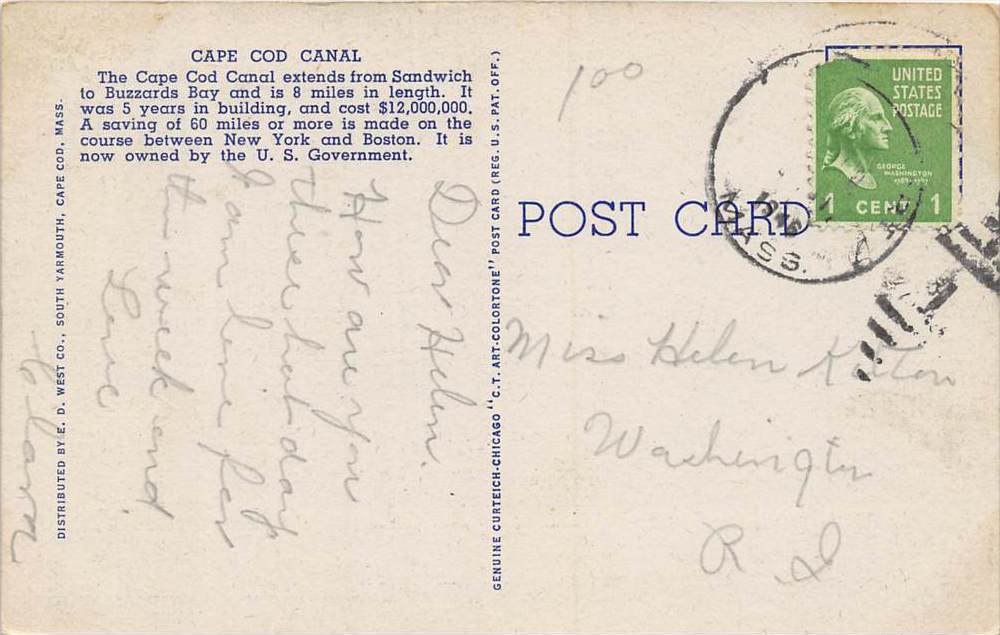 CAPE COD CANAL
The Cape Cod Canal extends from Sandwich
to Buzzards Bay and is 8 miles in length. It
was 5 years in building, and cost $12,000,000.
A saving of 60 miles or more is made on the
course between New York and Boston. It is
now owned by the U. S. Government.
DISTRIBUTED BY E. D. WEST CO., SOUTH YARMOUTH, CAPE COD, MASS.
Dear Helen.
How are you
these hot day
I am here for
the week end
Love
Clara
GENUINE CURTEICH-CHICAGO "C.T. ART-COLORTONE" POST CARD (REG. U.S. PAT. OFF.)
100
POST CARD
UNITED
STATES
POSTAGE
GEORGE
WASHINGTON
1789-1797
1 CENT 1
MASS.
Miss Helen
Washington
R. I